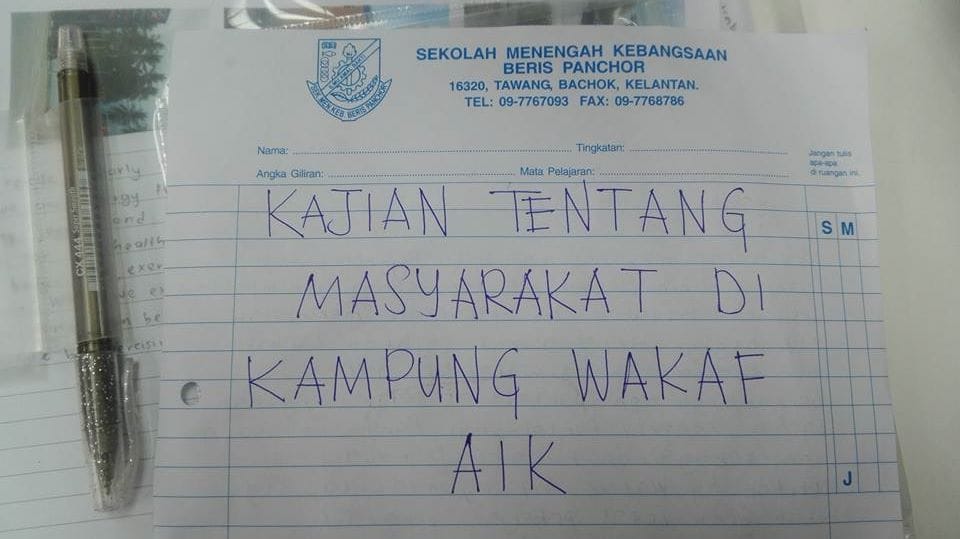 SEKOLAH MENENGAH KEBANGSAAN
BERIS PANCHOR
16320, TAWANG, BACHOK, KELANTAN.
TEL: 09-7767093 FAX: 09-7768786
SEK. MEN. KEB. BERIS PANCHOR
Nama: Tingkatan:
Angka Giliran: Mata Pelajaran:
Jangan tulis
apa-apa
di ruangan ini.
S M
KAJIAN TENTANG
MASYARAKAT DI
KAMPUNG WAKAF
AIK
J
CX 444
health